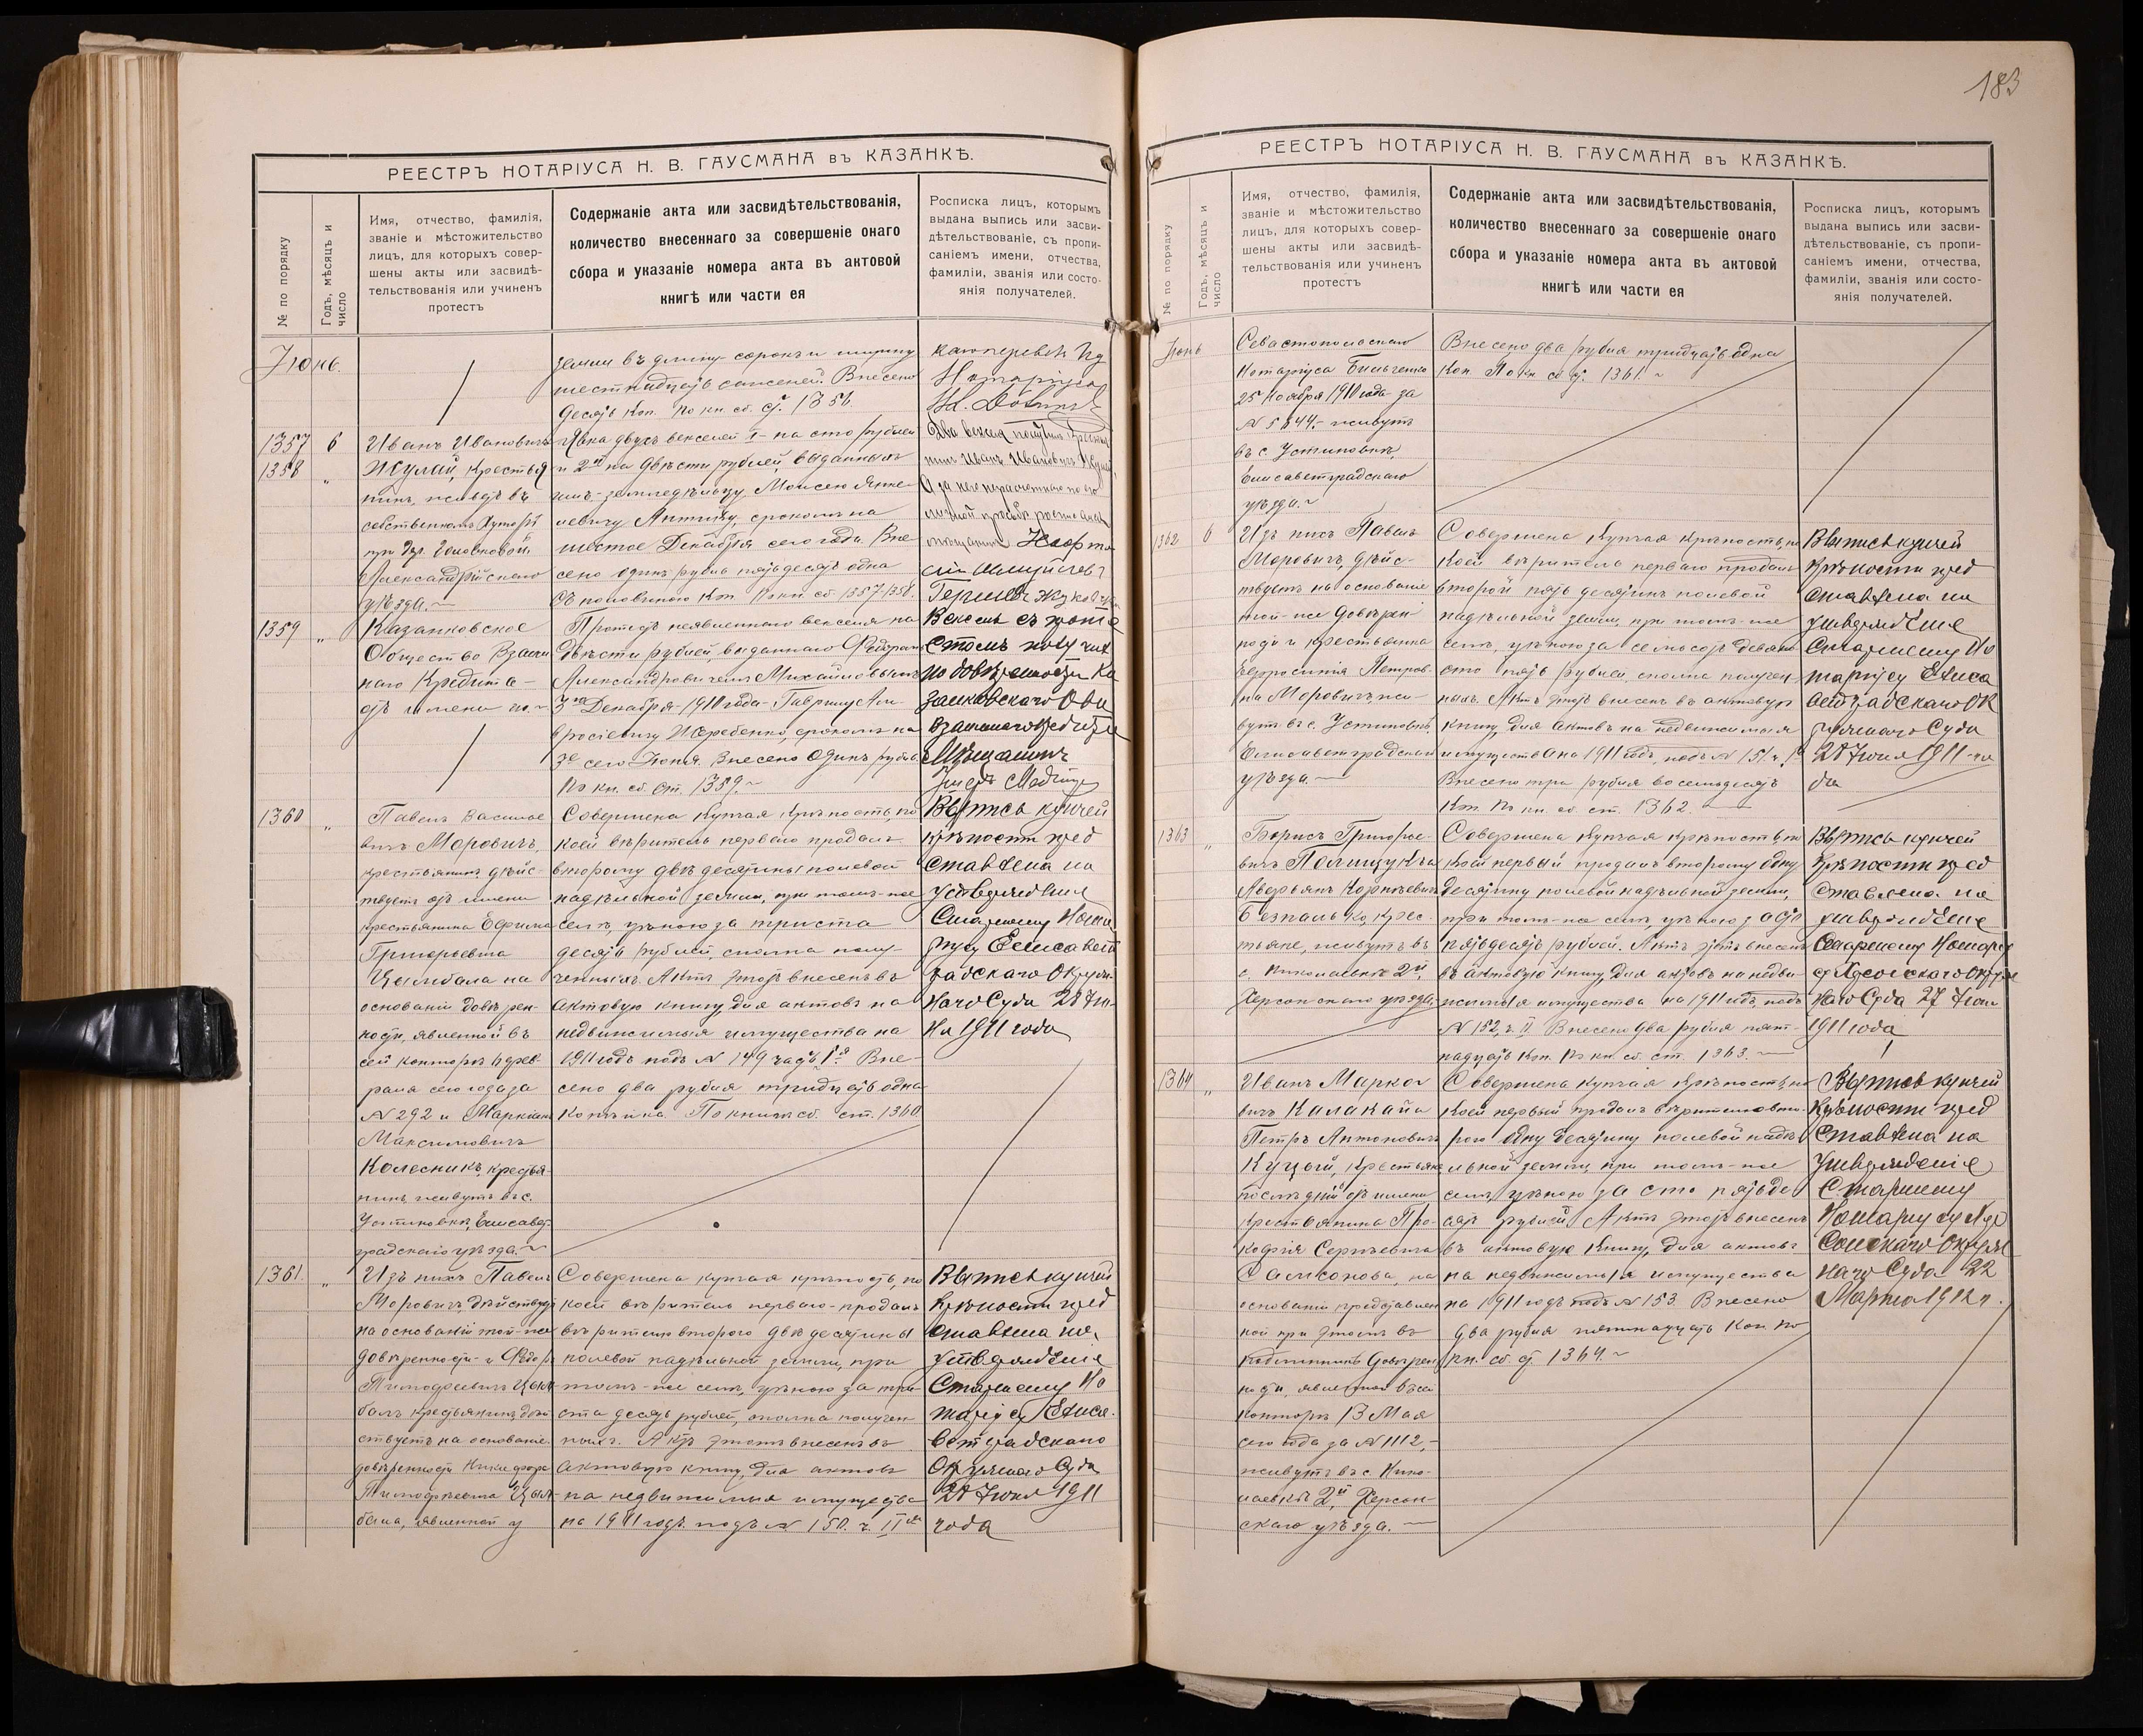 183
РЕЕСТРЪ НОТАРІУСА Н. В. ГАУСМАНА въ КАЗАНКѢ.
№ по порядку
Годъ, мѣсяцъ и число
Имя, отчество, фамилія,
званіе и мѣстожительство
лицъ, для которыхъ совер-
шены акты или засвидѣ-
тельствованія или учиненъ
протестъ
Содержаніе акта или засвидѣтельствованія,
количество внесеннаго за совершеніе онаго
сбора и указаніе номера акта въ актовой
книгѣ или части ея
Росписка лицъ, которымъ
выдана выпись или засви-
дѣтельствованіе, съ пропи-
саніемъ имени, отчества,
фамиліи, званія или состо-
янія получателей.
Іюнь.
земли въ длину сорокъ и ширину
шестнадцать саженей. Внесено
десять коп. По кн. сб. ст. 1356.
Нотаріуса
1357
1358
6
"
Иванъ Ивановичъ
Жулай, крестья
нинъ, живетъ въ
собственномъ хуторѣ
при дер.
Александрійскаго
уѣзда.
Явка двухъ векселей 1- на сто рублей
и 2й на двѣсти рублей, выданныхъ
имъ земледѣльцу Моисею Янке
левичу срокомъ на
шестое Декабря сего года. Вне
сено одинъ рубль пятьдесятъ одна
съ половиною коп. По кн. сб. 1357-1358.
Два векселя получилъ
Иванъ Ивановичъ
1359
"
Казанковское
Общество Взаим
наго Кредита
Протестъ неявленнаго векселя на
двѣсти рублей, выданнаго Федоромъ
Александровичемъ Михайловымъ
3го Декабря 1910 года Гавриилу Ам
вросіевичу Жеребенко, срокомъ на
3е сего Іюня. Внесено одинъ рубль
По кн. сб. ст. 1359.
Вексель съ проте
стомъ получилъ
по довѣренности Ка
занковскаго О-ва
Взаимнаго Кредита
Мѣщанинъ
1360
"
Павелъ Василье
вичъ Моровичъ,
крестьянинъ, дѣйс-
твуетъ отъ имени
крестьянина Ефима
Григорьевича
Цымбала на
основаніи довѣрен-
ности, явленной въ
сей конторѣ Февр
раля сего года за
№ 292 и Маркіанъ
Максимовичъ
Колесникъ, крестья-
нинъ, живутъ въ с.
Устиновкѣ, Елисавет-
градскаго уѣзда.
Совершена купчая крѣпость, по
коей вѣритель перваго продалъ
второму двѣ десятины полевой
надѣльной земли, при томъ-же
селѣ, цѣною за триста
десять рублей, сполна полу-
ченныхъ. Актъ этотъ внесенъ въ
актовую книгу для актовъ на
недвижимыя имущества на
1911 годъ подъ № 149 часть Iя Вне-
сено два рубля тридцать одна
копѣйка. По книгѣ сб. ст. 1360
Выпись купчей
крѣпости пред
ставлена на
утвержденіе
Старшему Нота
ріусу Елисавет
градскаго Окруж-
наго Суда 28 Ію-
ня 1911 года
1361.
"
Изъ нихъ Павелъ
Моровичъ, дѣйствуетъ
на основаніи той-же
довѣренности и Федоръ
Тимофеевичъ Цым-
балъ крестьянинъ дѣй
ствуетъ на основаніи
довѣренности Никифора
Тимофѣевича Цым-
бала, явленной у
Совершена купчая крѣпость, по
коей вѣритель перваго продалъ
вѣрителю второго двѣ десятины
полевой надѣльной земли, при
томъ-же селѣ, цѣною за три-
ста десять рублей, сполна получен
ныхъ. Актъ этотъ внесенъ въ
актовую книгу для актовъ
на недвижимыя имущества
на 1911 годъ подъ № 150. ч. IIя
Выпись купчей
крѣпости пред
ставлена на
утвержденіе
Старшему Но
таріусу Елиса-
ветградскаго
Окружнаго Суда
28 Іюня 1911
года
РЕЕСТРЪ НОТАРІУСА Н. В. ГАУСМАНА въ КАЗАНКѢ.
№ по порядку
Годъ, мѣсяцъ и число
Имя, отчество, фамилія,
званіе и мѣстожительство
лицъ, для которыхъ совер-
шены акты или засвидѣ-
тельствованія или учиненъ
протестъ
Содержаніе акта или засвидѣтельствованія,
количество внесеннаго за совершеніе онаго
сбора и указаніе номера акта въ актовой
книгѣ или части ея
Росписка лицъ, которымъ
выдана выпись или засви-
дѣтельствованіе, съ пропи-
саніемъ имени, отчества,
фамиліи, званія или состо-
янія получателей.
Іюнь
Севастопольскаго
Нотаріуса
25 Ноября 1910 года за
№ 5844, живутъ
въ с. Устиновкѣ,
Елисаветградскаго
уѣзда.
Внесено два рубля тридцать одна
коп. По кн. сб. ст. 1361.
1362
6
Изъ нихъ Павелъ
Моровичъ, дѣйс-
твуетъ на основаніи
той-же довѣрен
ности и крестьянка
Евфросинія Петров-
на Моровичъ, жи-
вутъ въ с. Устиновкѣ,
Елисаветградскаго
уѣзда.
Совершена купчая крѣпость, по
коей вѣритель перваго продалъ
второй пять десятинъ полевой
надѣльной земли, при томъ-же
селѣ, цѣною за семьсотъ девяно
сто пять рублей, сполна получен
ныхъ. Актъ этотъ внесенъ въ актовую
книгу для актовъ на недвижимыя
имущества на 1911 годъ, подъ № 151 ч. I
Внесено три рубля восемьдесятъ
коп. По кн. сб. ст. 1362.
Выпись купчей
крѣпости пред
ставлена на
утвержденіе
Старшему Но
таріусу Елиса
ветградскаго Ок
ружнаго Суда
28 Іюня 1911 го
да
1363
"
Борисъ Григорье-
вичъ Полищукъ и
Аверьянъ Корнѣевичъ
Безпалько, крес-
тьяне, живутъ въ
с. Николаевкѣ 2й,
Херсонскаго уѣзда,
Совершена купчая крѣпость, по
коей первый продалъ второму одну
десятину полевой надѣльной земли,
при томъ-же селѣ, цѣною за сто
пятьдесятъ рублей. Актъ этотъ внесенъ
въ актовую книгу для актовъ на недви
жимыя имущества на 1911 годъ, подъ
№ 152, ч. II. Внесено два рубля пят-
надцать коп. По кн. сб. ст. 1363.
Выпись купчей
крѣпости пред
ставлена на
утвержденіе
Старшему Нотаріу
су Одесскаго Окруж
наго Суда 27 Іюня
1911 года
1364
"
Иванъ Марко
вичъ Калакайла
Петръ Антоновичъ
Куцый, крестьяне
послѣдній отъ имени
крестьянина Про-
кофія Сергѣевича
Самсонова, на
основаніи представлен
ной при этомъ въ
подлинникѣ довѣрен
ности, явленной въ сей
конторѣ 13 Мая
сего года за № 1112,-
живутъ въ с. Нико-
лаевкѣ 2й, Херсон-
скаго уѣзда.
Совершена купчая крѣпость, по
коей первый продалъ вѣрителю вто-
рого одну десятину полевой надѣ
льной земли, при томъ-же
селѣ, цѣною за сто пятьде
сятъ рублей. Актъ этотъ внесенъ
въ актовую книгу, для актовъ
на недвижимыя имущества
на 1911 годъ подъ № 153. Внесено
два рубля пятнадцать коп. по
кн. сб. ст. 1364.
Выпись купчей
крѣпости пред
ставлена на
утвержденіе
Старшему
Нотаріусу Оде
сскаго Окруж
наго Суда 22
Марта 1912 г.